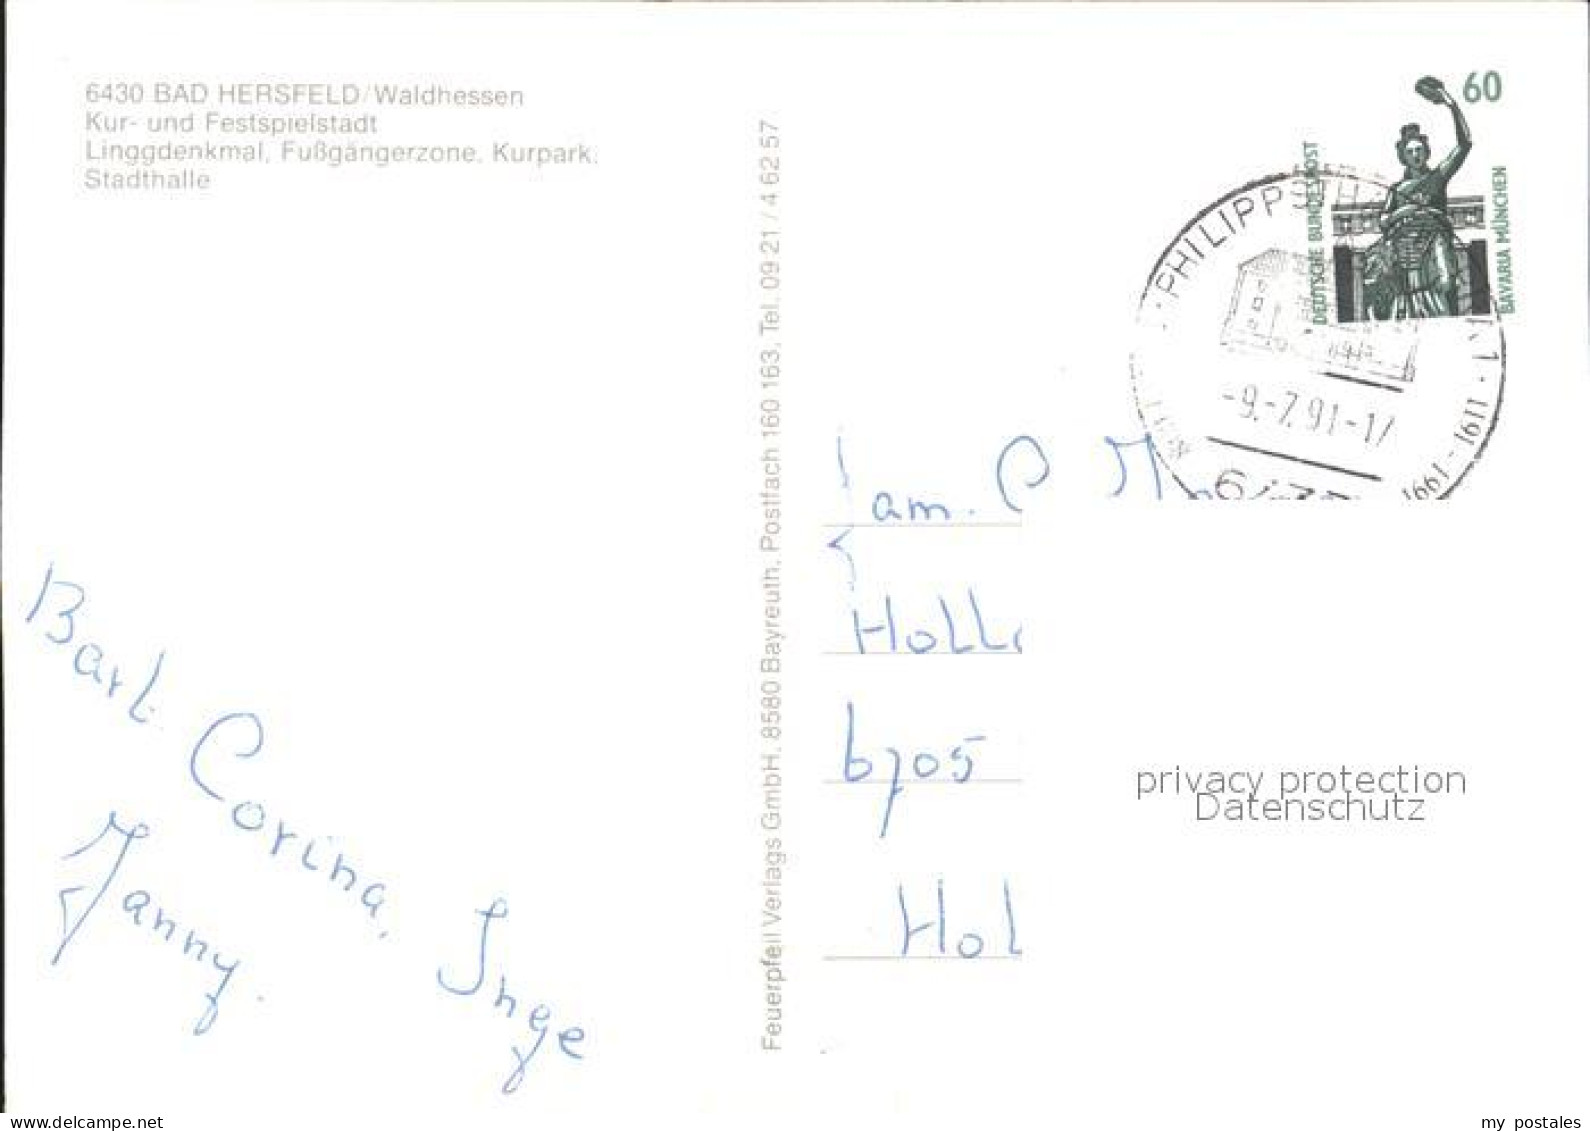 6430 BAD HERSFELD/Waldhessen
Kur- und Festspielstadt
Linggdenkmal, Fußgängerzone, Kurpark,
Stadthalle
Bart
Corina, Inge
Janny.
Feuerpfeil Verlags GmbH, 8580 Bayreuth, Postfach 160 163, Tel. 09 21 / 4 62 57
60
DEUTSCHE BUNDESPOST
BAVARIA MÜNCHEN
1191-1991
-9.-7.91-17
Fam.
6705
Hol
privacy protection
Datenschutz
www.delcampe.net
my postales